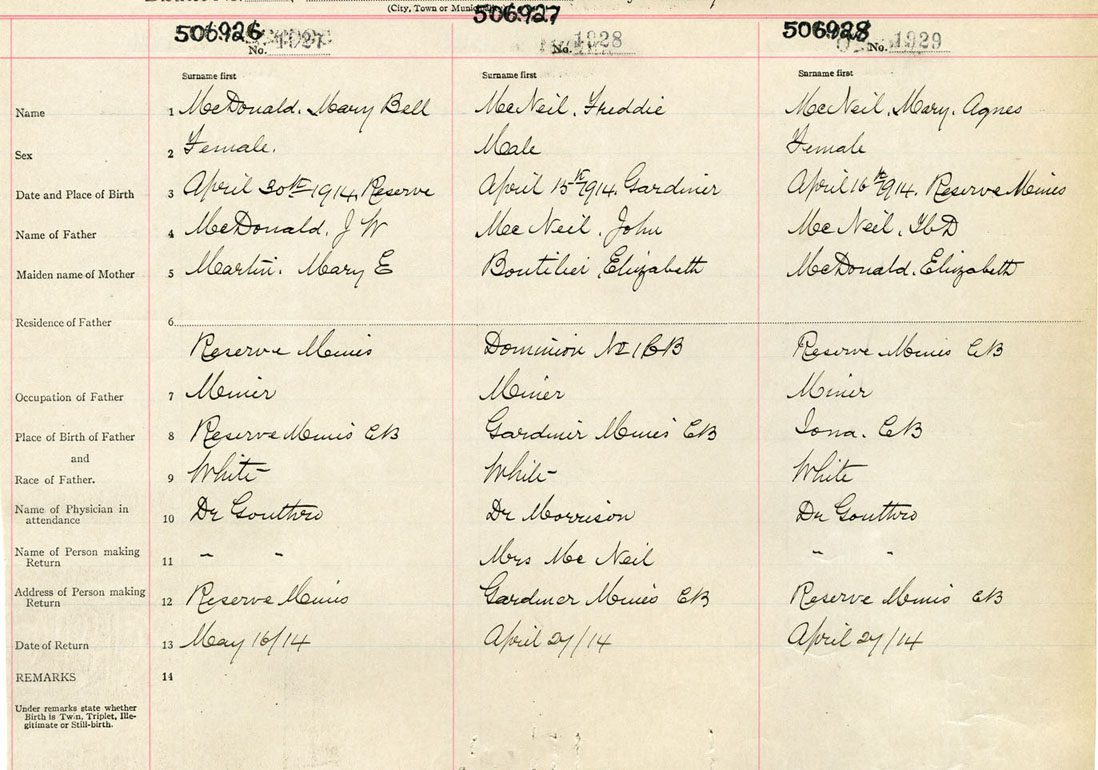 (City, Town or Municipality)
506926 No. 1927 506927 No. 1928 506928 No. 1929
Surname first Surname first Surname first
Name 1 McDonald. Mary Bell McNeil. Freddie MacNeil. Mary. Agnes
Sex 2 Female. Male Female
Date and Place of Birth 3 April 30th 1914, Reserve April 15th 1914. Gardiner April 16th 1914. Reserve Mines
Name of Father 4 McDonald. J W Mc Neil. John Mc Neil.
Maiden name of Mother 5 Martin. Mary E Boutilier, Elizabeth McDonald. Elizabeth
Residence of Father 6
Reserve Mines Dominion No 1 CB Reserve Mines CB
Occupation of Father 7 Miner Miner Miner
Place of Birth of Father 8 Reserve Mines CB Gardiner Mines CB Iona. CB
and
Race of Father. 9 White White White
Name of Physician in
attendance 10 Dr Gouthro Dr Morrison Dr Gouthro
Name of Person making
Return 11 " " Mrs Mc Neil " "
Address of Person making
Return 12 Reserve Mines Gardiner Mines CB Reserve Mines CB
Date of Return 13 May 16/14 April 27/14 April 27/14
REMARKS 14
Under remarks state whether
Birth is Twin, Triplet, Ille-
gitimate or Still-birth.